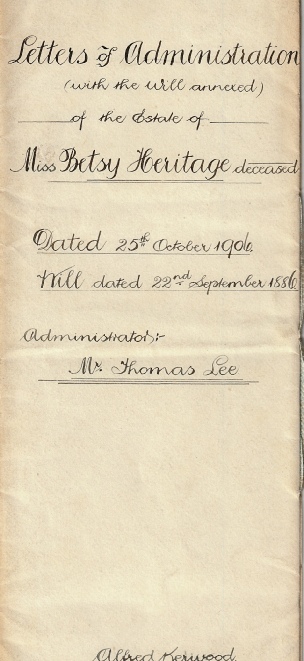 Letters of Administration
(with the Will annexed)
of the Estate of
Miss Betsy Heritage deceased
Dated 25th October 1906
Will dated 22nd September 1886
Administrator:-
Mr. Thomas Lee
Alfred Kerwood